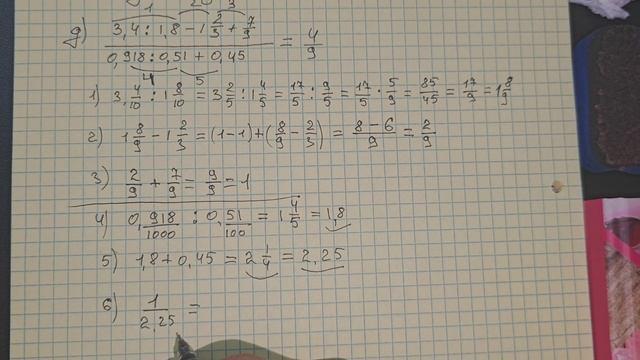 1 2 3
g) 3,4 : 1,8 - 1 2/3 + 7/9
0,918 : 0,51 + 0,45 = 4/9
4 5
1) 3, 4/10 : 1 8/10 = 3 2/5 : 1 4/5 = 17/5 : 9/5 = 17/5 · 5/9 = 85/45 = 17/9 = 1 8/9
2) 1 8/9 - 1 2/3 = (1-1) + (8/9 - 2/3) = 8-6/9 = 2/9
3) 2/9 + 7/9 = 9/9 = 1
4) 0, 918/1000 : 0, 51/100 = 1 4/5 = 1,8
5) 1,8 + 0,45 = 2 1/4 = 2,25
6) 1/2,25 =